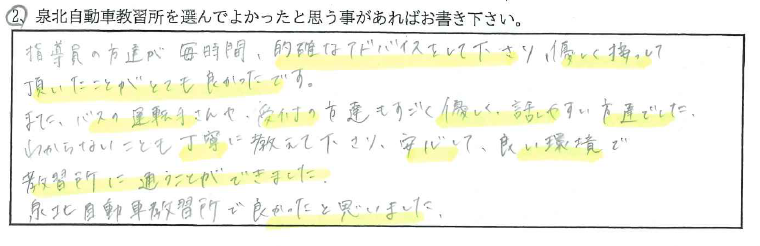 ②、泉北自動車教習所を選んでよかったと思う事があればお書き下さい。
指導員の方達が毎時間、的確なアドバイスをして下さり、優しく接して
頂いたことがとても良かったです。
また、バスの運転手さんや、受付の方達もすごく優しく、話しやすい方達でした。
わからないことも丁寧に教えて下さり、安心して、良い環境で
教習所に通うことができました。
泉北自動車教習所で良かったと思いました。